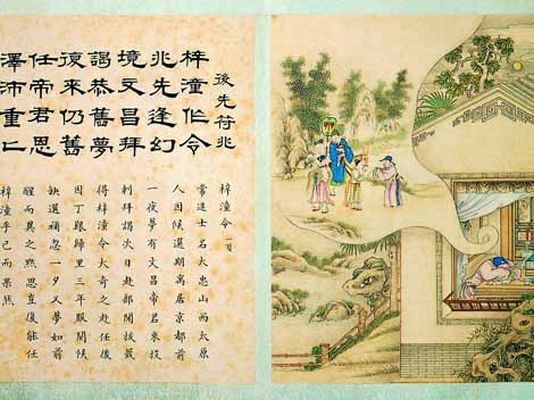 後先符兆
梓潼作令
兆先逢幻
境文昌拜
謁恭舊夢
復來仍舊
任帝君恩
澤沛重
梓潼令
常進士名大忠山西太原
人因候選期寓居京都前
一夜夢有文昌帝君來投
刺拜謁次日赴部開拔
得梓潼令大奇之赴任後
因丁艱歸里三年服闋候
缺選補忽一夕又夢如前
醒而異之默思豈復能任
梓潼乎已而果然